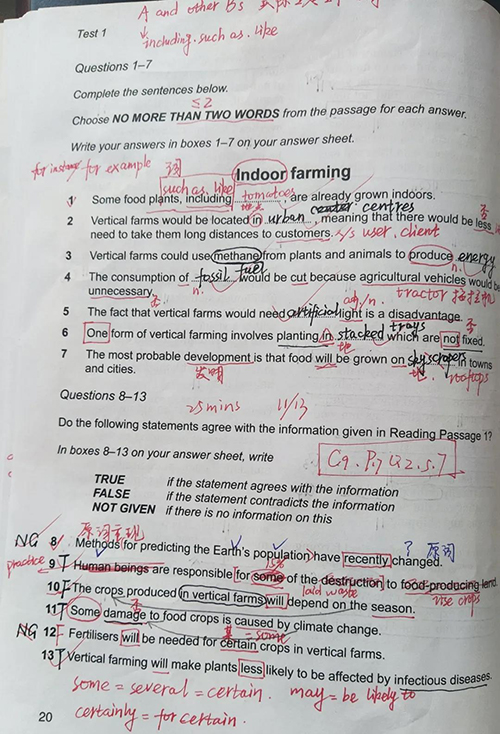 A and other Bs
Test 1
including. such as. like
Questions 1–7
Complete the sentences below.
≤2
Choose NO MORE THAN TWO WORDS from the passage for each answer.
Write your answers in boxes 1–7 on your answer sheet.
for instance for example 词
Indoor farming
such as. like
1 Some food plants, including tomatoes, are already grown indoors.
地点
2 Vertical farms would be located in urban centres, meaning that there would be less 否
need to take them long distances to customers. user. client
3 Vertical farms could use methane from plants and animals to produce energy
n.
4 The consumption of fossil fuel would be cut because agricultural vehicles would be
unnecessary. 否 n. tractor 拖拉机
adj/n.
5 The fact that vertical farms would need artificial light is a disadvantage. 否
6 One form of vertical farming involves planting in stacked trays which are not fixed.
地
7 The most probable development is that food will be grown on skyscrapers in towns
and cities. 发明 地. rooftops
Questions 8–13 25mins 11/13
Do the following statements agree with the information given in Reading Passage 1?
In boxes 8–13 on your answer sheet, write
C9. P.17 Q2.5.7
TRUE if the statement agrees with the information
FALSE if the statement contradicts the information
NOT GIVEN if there is no information on this
原词重现
NG 8 Methods for predicting the Earth's population have recently changed. ? 原词
practice 15%
9 T Human beings are responsible for some of the destruction to food-producing land.
laid waste use crops
10 F The crops produced in vertical farms will depend on the season.
11 T Some damage to food crops is caused by climate change.
= some
NG 12 F Fertilisers will be needed for certain crops in vertical farms.
13 T Vertical farming will make plants less likely to be affected by infectious diseases.
some = several = certain. may = be likely to
20 certainly = for certain.